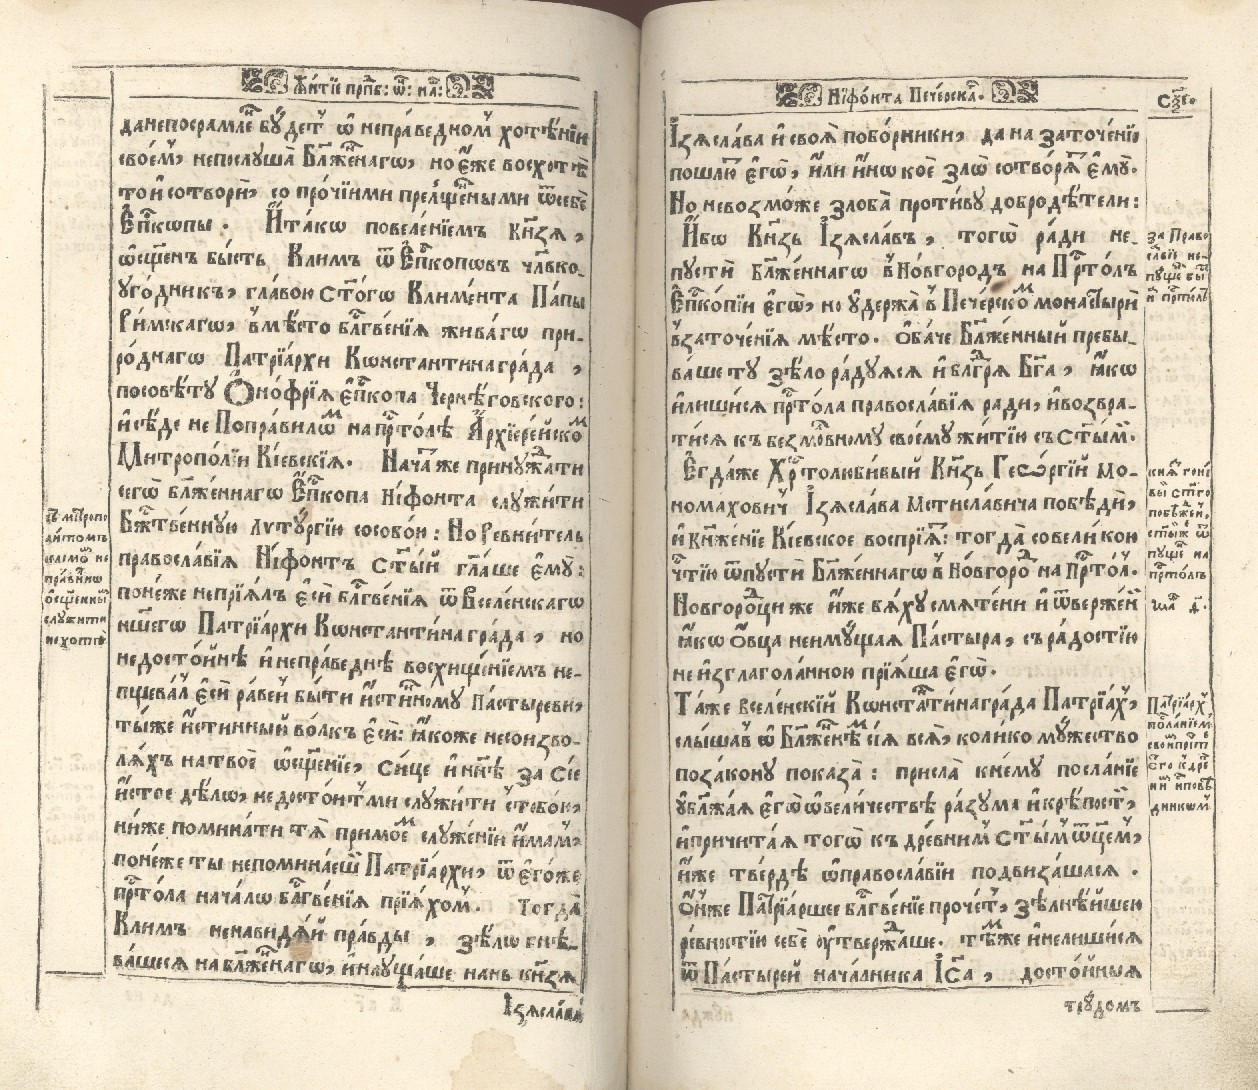 Житїе прпⷣб: ѿ: нш҃:
да непосрамле́ бу́детъ ѡ҆ непра́ведномъ хотѣ́нїи
свое́мъ, непослуша̀ Бл҃же́ннагѡ, но є҆́же восхотѣ̀
то и҆ сотвори̑, со про́чїими преле́щеными ѿ себѐ
Е҆пⷭ҇копы. И҆ та́кѡ повеле́нїемъ Кнѧ҃зѧ,
ѡ҆сщ҃е́нъ бы́сть Кли́мъ ѿ Е҆пⷭ҇коповъ чл҃вко-
уго́дникъ, главо́ю ст҃о́гѡ Климе́нта Па́пы
Ри́мскагѡ, в̾мѣ́сто бл҃гве́нїѧ жива́гѡ при-
ро́днагѡ Патрїа́рхи Кѡнстанти́награ́да,
по совѣ́ту Ѻ҆но́фрїѧ є҆пⷭ҇копа Чернѣ́говского:
и҆ сѣ́де не Попра́вилѡмъ на прⷭ҇то́лѣ А҆рхїере́йскомъ
Митропо́лїи Кі́евскїѧ. Нача́тже принужда́ти
сегѡ̀ бл҃же́ннагѡ Е҆пⷭ҇копа Ни́фонта служи́ти
Бж҃е́ственную Лутургі́ю со собо́ю: Но Ревни́тель
правосла́вїѧ Ни́фонтъ ст҃ы́й гл҃аше є҆му̀:
поне́же неприѧ́лъ є҆сѝ бл҃гве́нїѧ ѿ Вселе́нскагѡ
на́шегѡ Патрїа́рхи Кѡнстанти́награ́да, но
недосто́йнѣ и҆ непра́веднѣ восхище́нїемъ не-
пщева́лъ є҆сѝ ра́венъ бы́ти и҆́стинному Па́стыреви,
ты́же и҆́стинный во́лкъ є҆сѝ: ꙗ҆́коже несоизво-
лѧ́хъ на твоѐ ѡ҆сщ҃е́нїе, си́це и҆ нн҃ѣ за сїѐ
и҆́стое дѣ́лѡ, недосто́итъ ми служи́ти с тобо́ю,
ни́же помина́ти тѧ̀ при моє́мъ служе́нїи и҆́мамъ,
поне́же ты̀ непомина́еши Патрїа́рхи, ѿ є҆гѡ́же
прⷭ҇то́ла нача́лѡ бл҃гве́нїѧ прїѧ́хомъ. Тогда̀
Кли́мъ ненави́дѧй пра́вды, зѣлѡ̀ гнѣ́-
вашесѧ на бл҃же́ннагѡ, и҆ навуща́ше нань кн҃зѧ
Ізѧсла́ва
Ни́фонта Пече́рскагѡ.
Ізѧсла́ва и҆ своѧ̀ побо́рники, да на заточе́нїе
пошлю́тъ є҆гѡ̀, и҆лѝ и҆́нѡ коѐ злѡ̀ сотворѧ́тъ є҆му̀.
Но невозмо́же зло́ба проти́ву добродѣ́тели:
И҆́бѡ Кн҃зь Ізѧсла́въ, тогѡ̀ ра́ди не-
пустѝ бл҃же́ннагѡ в̾ Но́вгородъ на Прⷭ҇то́лъ
Е҆пⷭ҇ко́пїи є҆гѡ̀, но у҆держа̀ в̾ Пече́рскомъ монастырѝ
в̾ заточе́нїѧ мѣ́сто. Ѻ҆ба́че Бл҃же́нный пребы-
ва́ше ту̀ зѣло̀ ра́дуѧсѧ и҆ бл҃годарѧ̀ Бг҃а, ꙗ҆́кѡ
и҆ лиши́сѧ прⷭ҇то́ла правосла́вїѧ ра́ди, и҆ возвра-
ти́сѧ къ безмо́лвному своему̀ житїю̀ съ ст҃ы́мъ.
Е҆гда́же Хрⷭ҇толюби́вый Кн҃зь Геѡ́ргїй мо-
нома́ховичъ Ізѧсла́ва Мстисла́вича побѣдѝ,
и҆ кн҃же́нїе Кі́евское воспрїѧ́тъ: тогда̀ со вели́кою
чтⷭ҇їю ѿпустѝ Бл҃же́ннагѡ в̾ Но́вгородъ на Прⷭ҇то́лъ.
Новгоро́дци же и҆́же бѧ́ху смѧте́ни и҆ ѿве́ржени
ꙗ҆́кѡ ѻ҆вца̀ неиму́щаѧ Па́стырѧ, съ ра́достїю
неизглаго́ланною прїѧ́ша є҆гѡ̀.
Та́же вселе́нскїй Кѡнстанти́награ́да Патрїа́рхъ,
слы́шавъ ѡ҆ Бл҃же́ннѣмъ сїѧ̀ всѧ̀, коли́ко му́жество
по зако́ну показа̀: присла̀ к нему̀ посла́нїе
у҆бл҃жа́ѧ є҆гѡ̀ ѡ҆ вели́чествѣ ра́зума и҆ крѣ́пости,
и҆ причита́ѧ тогѡ̀ къ дре́внимъ ст҃ы́мъ ѻ҆тце́мъ,
и҆́же тве́рдѣ ѡ҆ правосла́вїи подвиза́шасѧ.
Ѻ҆́нъже Патрїа́ршее бл҃гве́нїе проче́тъ, зѣлнѣ́йшею
ре́вностїю себѐ у҆твержда́ше. Тѣ́мже и҆ нелиши́сѧ
ѿ Па́стырей нача́лника Іс҃а, досто́йныѧ
трудо́мъ